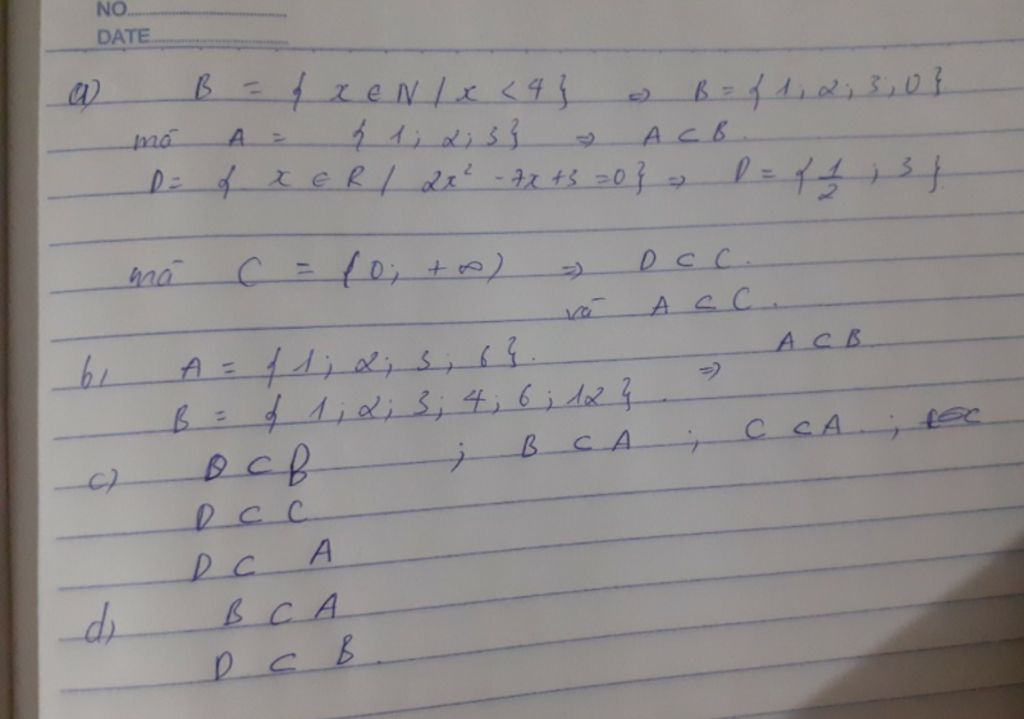 NO
DATE
a) B = { x ∈ N / x < 4 } ⇒ B = { 1 ; 2 ; 3 ; 0 }
mà A = { 1 ; 2 ; 3 } ⇒ A ⊂ B.
D = { x ∈ R / 2x² - 7x + 3 = 0 } ⇒ D = { 1/2 ; 3 }
mà C = (0 ; +∞) ⇒ D ⊂ C.
và A ⊂ C.
b) A = { 1 ; 2 ; 3 ; 6 }.
⇒ A ⊂ B
B = { 1 ; 2 ; 3 ; 4 ; 6 ; 12 }.
c) D ⊂ B ; B ⊂ A ; C ⊂ A. ;
D ⊂ C
D ⊂ A
d) B ⊂ A
D ⊂ B.